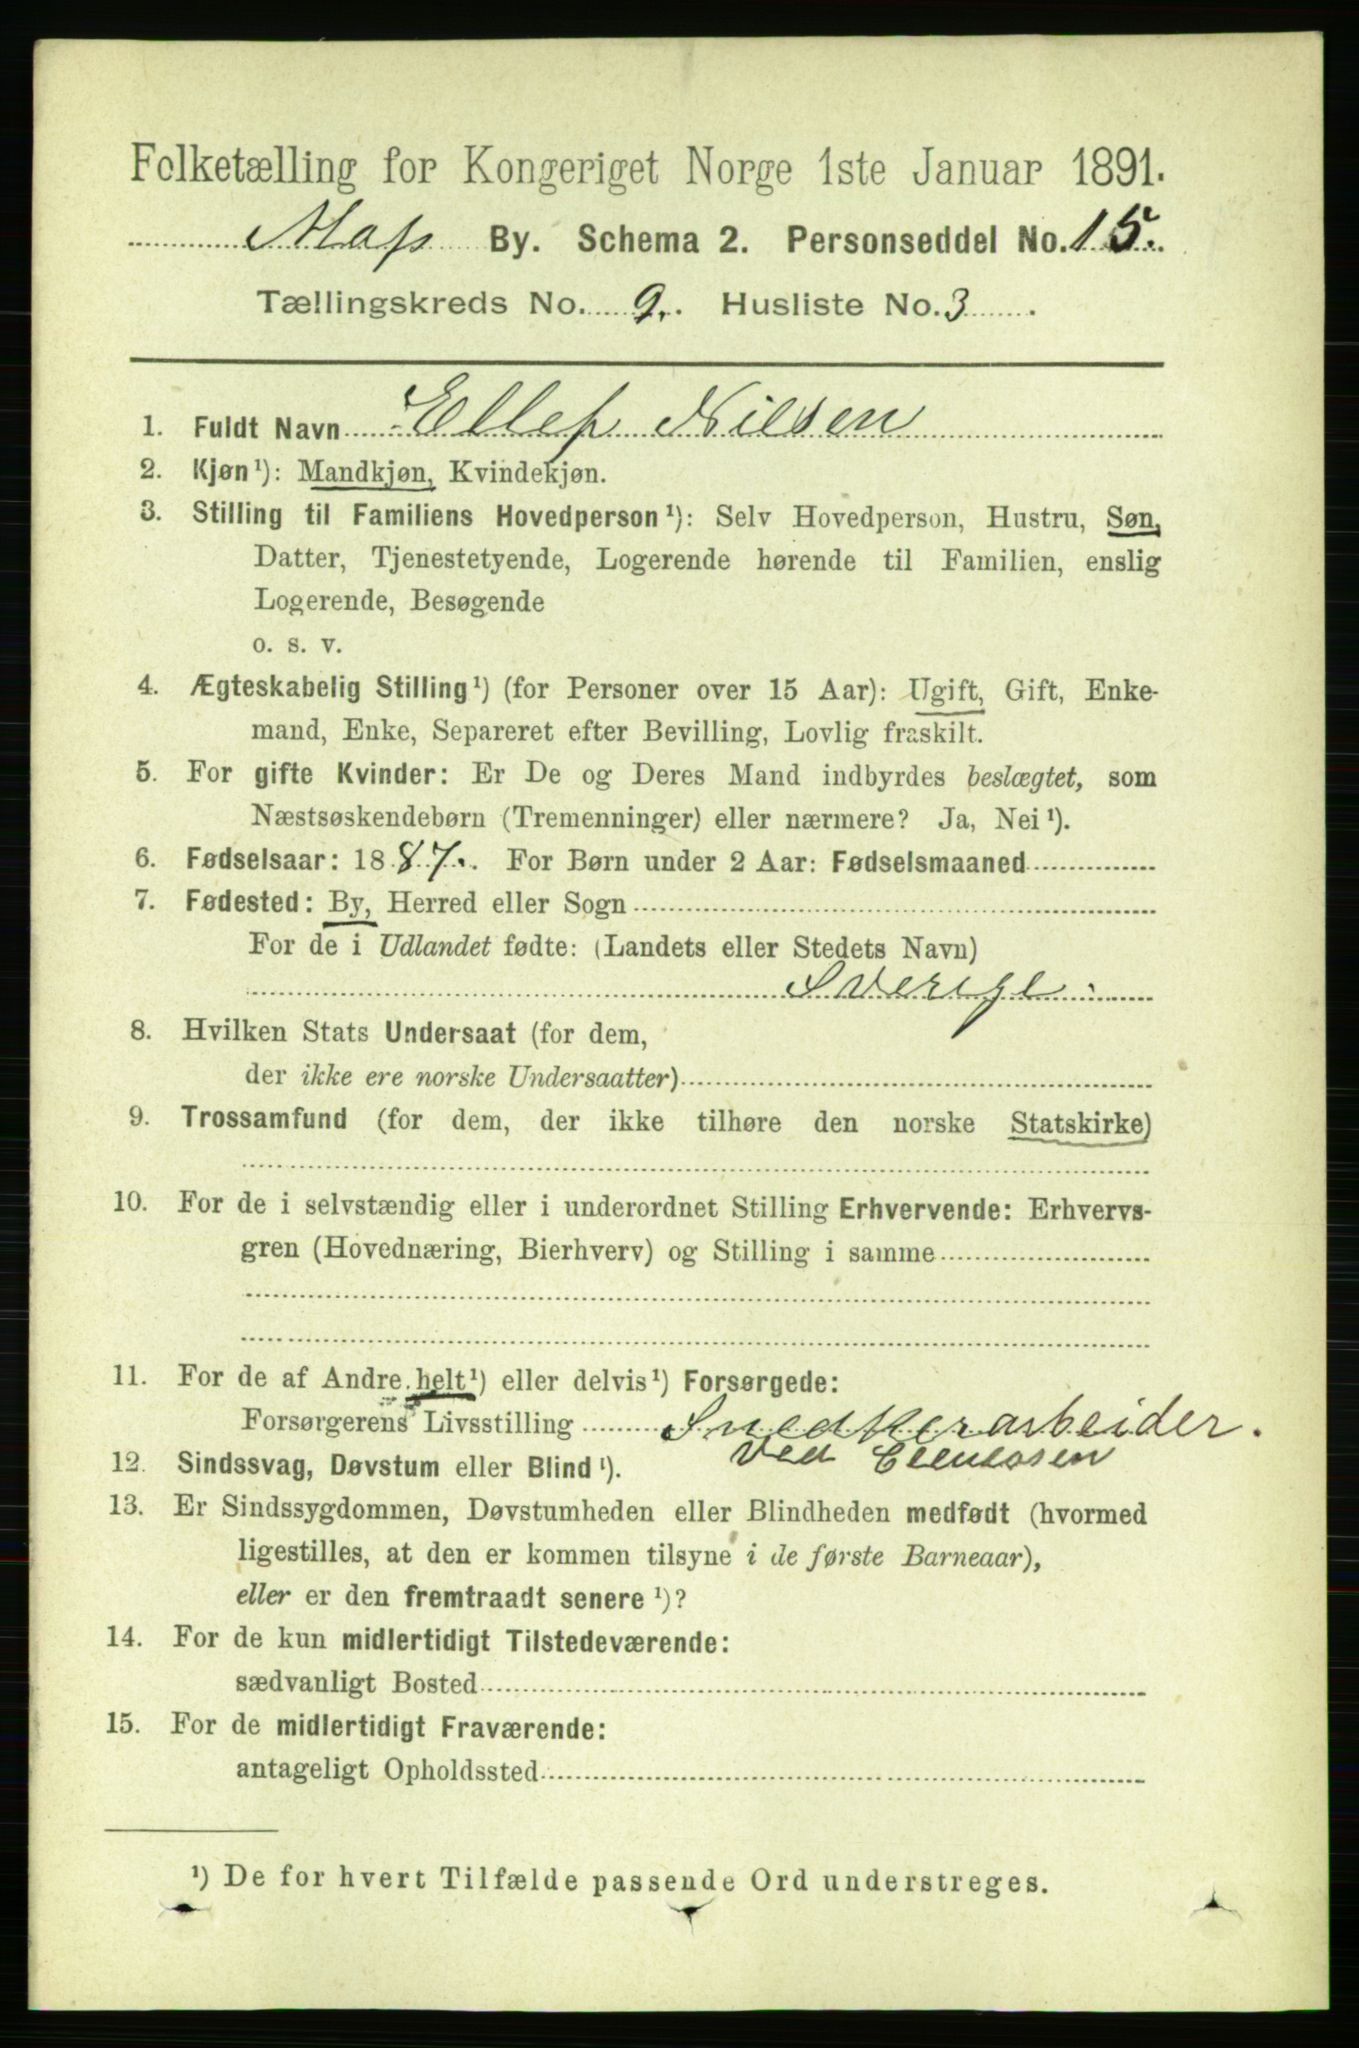 Folketælling for Kongeriget Norge 1ste Januar 1891.
Moss By. Schema 2. Personseddel No. 15.
Tællingskreds No. 9. Husliste No. 3.
1. Fuldt Navn Ellef Nilsen
2. Kjøn¹): Mandkjøn, Kvindekjøn.
3. Stilling til Familiens Hovedperson¹): Selv Hovedperson, Hustru, Søn,
Datter, Tjenestetyende, Logerende hørende til Familien, enslig
Logerende, Besøgende
o. s. v.
4. Ægteskabelig Stilling¹) (for Personer over 15 Aar): Ugift, Gift, Enke-
mand, Enke, Separeret efter Bevilling, Lovlig fraskilt.
5. For gifte Kvinder: Er De og Deres Mand indbyrdes beslægtet, som
Næstsøskendebørn (Tremenninger) eller nærmere? Ja, Nei¹).
6. Fødselsaar: 1887. For Børn under 2 Aar: Fødselsmaaned
7. Fødested: By, Herred eller Sogn
For de i Udlandet fødte: (Landets eller Stedets Navn)
Sverige.
8. Hvilken Stats Undersaat (for dem,
der ikke ere norske Undersaatter)
9. Trossamfund (for dem, der ikke tilhøre den norske Statskirke)
10. For de i selvstændig eller i underordnet Stilling Erhvervende: Erhvervs-
gren (Hovednæring, Bierhverv) og Stilling i samme
11. For de af Andre helt¹) eller delvis¹) Forsørgede:
Forsørgerens Livsstilling Snedkerarbeider.
ved
12. Sindssvag, Døvstum eller Blind¹).
13. Er Sindssygdommen, Døvstumheden eller Blindheden medfødt (hvormed
ligestilles, at den er kommen tilsyne i de første Barneaar),
eller er den fremtraadt senere¹)?
14. For de kun midlertidigt Tilstedeværende:
sædvanligt Bosted
15. For de midlertidigt Fraværende:
antageligt Opholdssted
¹) De for hvert Tilfælde passende Ord understreges.